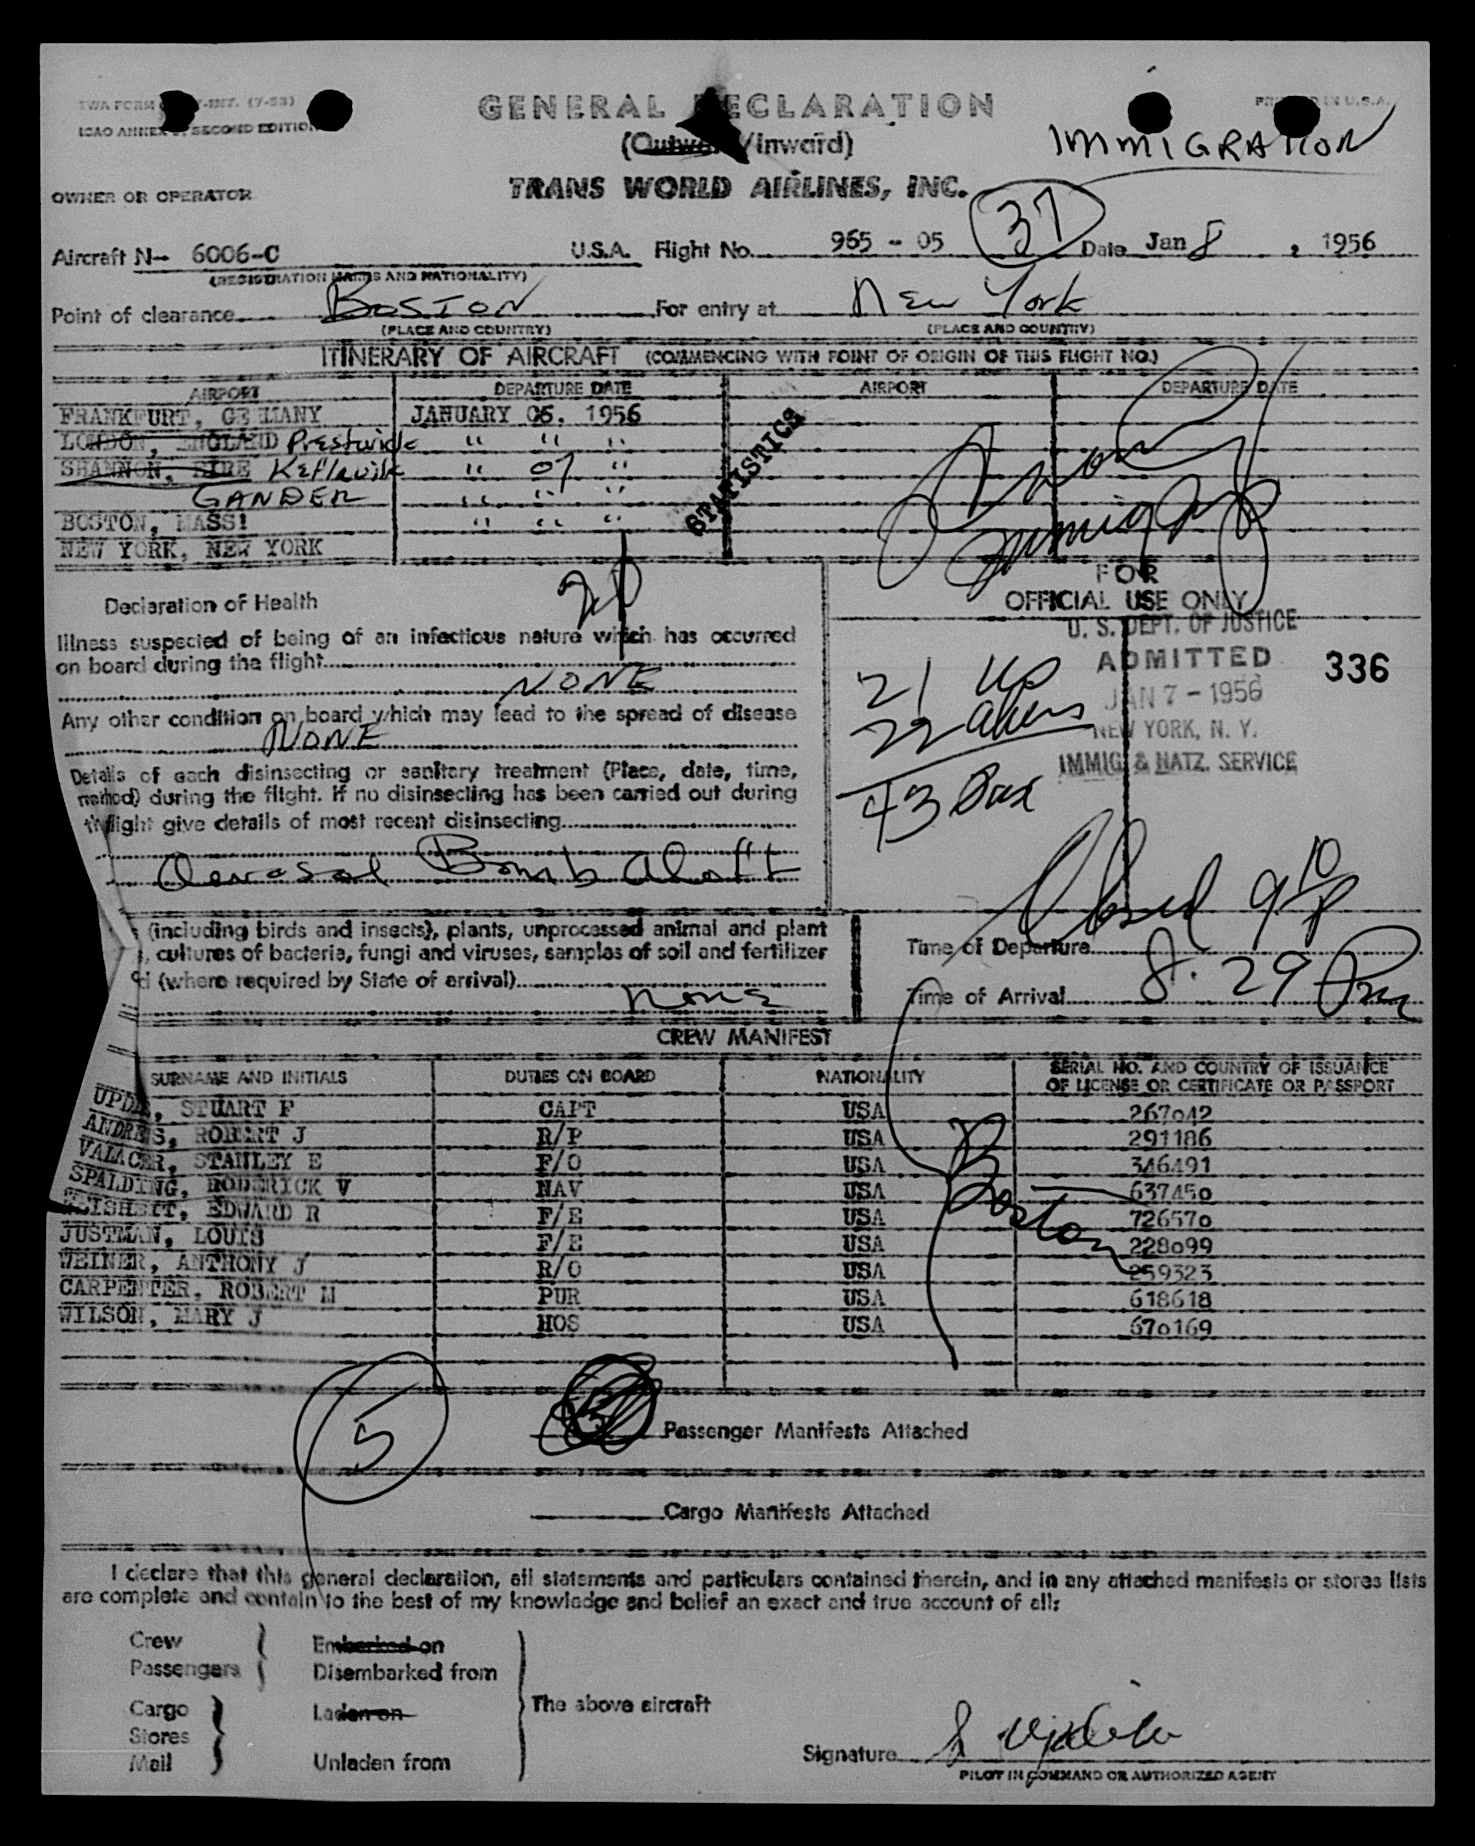 TWA FORM -INT. (7-53)
ICAO ANNEX SECOND EDITION
PRINTED IN U.S.A.
GENERAL DECLARATION
(Outward/Inward)
IMMIGRATION
OWNER OR OPERATOR
TRANS WORLD AIRLINES, INC.
37
Aircraft N- 6006-C U.S.A. Flight No. 965 - 05 Date Jan 8, 1956
(REGISTRATION MARKS AND NATIONALITY)
Point of clearance BOSTON For entry at New York
(PLACE AND COUNTRY) (PLACE AND COUNTRY)
ITINERARY OF AIRCRAFT (COMMENCING WITH POINT OF ORIGIN OF THIS FLIGHT NO.)
AIRPORT DEPARTURE DATE AIRPORT DEPARTURE DATE
FRANKFURT, GERMANY JANUARY 06, 1956
LONDON, ENGLAND Prestwick " " "
SHANNON, EIRE Keflavik " 07 "
GANDER " " "
BOSTON, MASS! " " "
NEW YORK, NEW YORK
STATISTICS
Declaration of Health
Illness suspected of being of an infectious nature which has occurred
on board during the flight
NONE
Any other condition on board which may lead to the spread of disease
NONE
Details of each disinsecting or sanitary treatment (Place, date, time,
method) during the flight. If no disinsecting has been carried out during
flight give details of most recent disinsecting
Aerosol Bomb Aloft
FOR
OFFICIAL USE ONLY
U. S. DEPT. OF JUSTICE
ADMITTED 336
JAN 7 - 1956
NEW YORK, N. Y.
IMMIG. & NATZ. SERVICE
21 US
22 aliens
43 Pax
(including birds and insects), plants, unprocessed animal and plant
, cultures of bacteria, fungi and viruses, samples of soil and fertilizer
(where required by State of arrival)
none
Closed 9 10 P
Time of Departure
Time of Arrival 8:29 Pm
CREW MANIFEST
SURNAME AND INITIALS DUTIES ON BOARD NATIONALITY SERIAL NO. AND COUNTRY OF ISSUANCE
OF LICENSE OR CERTIFICATE OR PASSPORT
STUART F CAPT USA 267042
ANDRES, ROBERT J R/P USA 291186
VALACER, STANLEY E F/O USA 346491
SPALDING, RODERICK V NAV USA 637450
WEISHEIT, EDWARD R F/E USA 726570
JUSTMAN, LOUIS F/E USA 228099
WEINER, ANTHONY J R/O USA 259323
CARPENTER, ROBERT M PUR USA 618618
WILSON, MARY J HOS USA 670169
Boston
5
Passenger Manifests Attached
Cargo Manifests Attached
I declare that this general declaration, all statements and particulars contained therein, and in any attached manifests or stores lists
are complete and contain to the best of my knowledge and belief an exact and true account of all:
Crew Embarked on
Passengers Disembarked from
Cargo Laden on The above aircraft
Stores
Mail Unladen from
Signature
PILOT IN COMMAND OR AUTHORIZED AGENT